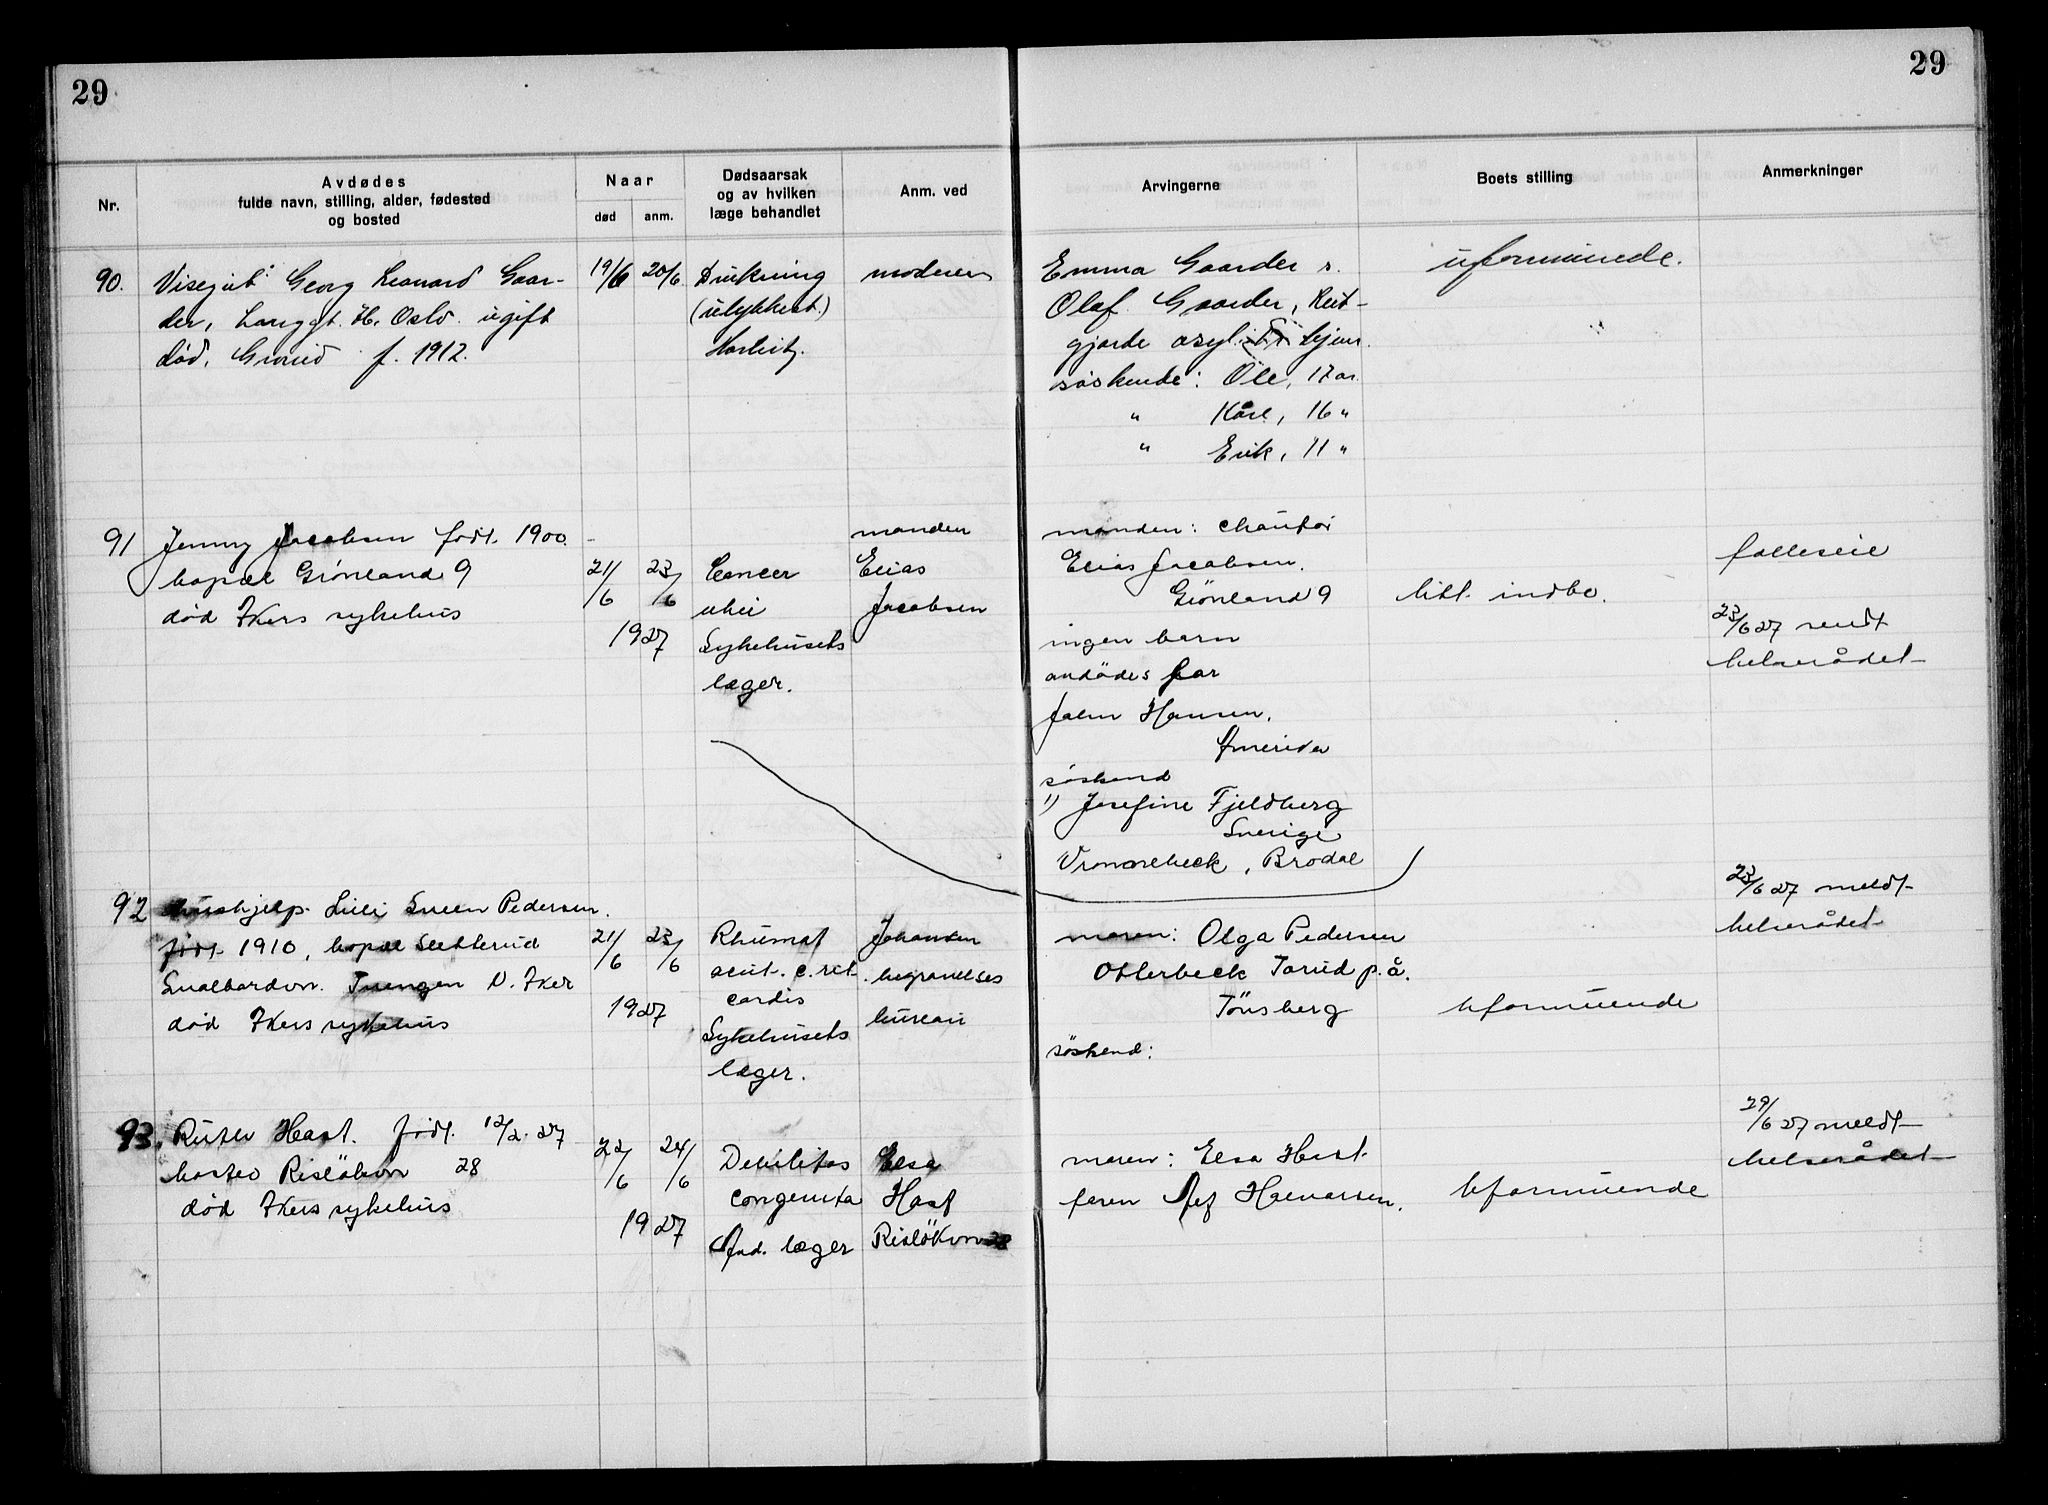 29
29
Nr.
Avdødes
fulde navn, stilling, alder, fødested
og bosted
Naar
død
anm.
Dødsaarsak
og av hvilken
læge behandlet
Anm. ved
Arvingerne
Boets stilling
Anmerkninger
90. Visegut Georg Leonard Gaar-
der, Langgt. Oslo. ugift
død. Grorud f. 1912.
19/6 20/6
Drukning
(ulykkest.)
moderen
Emma Gaarder
Olaf Gaarder, Reit-
gjerde asyl.
søskende: Ole, 17 år
" Kåre, 16 "
" Erik, 11 "
uformuende.
91 Jenny Jacobsen født. 1900.
bopæl Grönland 9
død Akers sykehus
21/6 23/6
1927
Cancer
uteri
Sykehusets
læger.
manden
Elias
Jacobsen
manden: chauför
Elias Jacobsen.
Grönland 9
ingen barn
avdødes far
John Hansen.
Amerika
søskend
1) Josefine Fjeldberg
Sverige
Brodal
litt. indbo.
felleseie
23/6 27 sendt
helserådet
92 hushjelp. Lilli Sveen Pedersen.
født 1910, bopæl Sletterud
Tvengen V. Aker
død Akers sykehus
21/6 23/6
1927
Rhumat
acut. c. vit.
cordis
Sykehusets
læger.
Johansen
begravelses
bureau
moren: Olga Pedersen
Otterbeck Torød p.å.
Tönsberg
søskend:
Uformuende
23/6 27 meldt
helserådet
93. født. 12/2. 27
bosted Risløkvn 28
død Akers sykehus
22/6 24/6
1927
Debilitas
congenita
And. læger
Elsa
Hast
Risløkvn 28
moren: Elsa Hast
faren Halvorsen.
Uformuende
29/6 27 meldt
helserådet